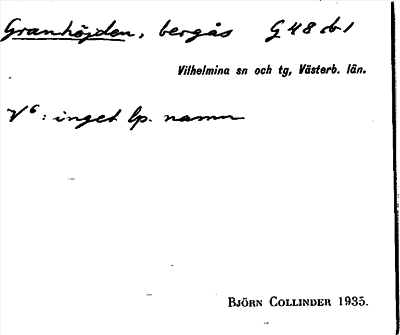 Granhöjden, bergås G 48 d 1
Vilhelmina sn och tg, Västerb. län.
V⁶: inget lp. namn
BJÖRN COLLINDER 1935.